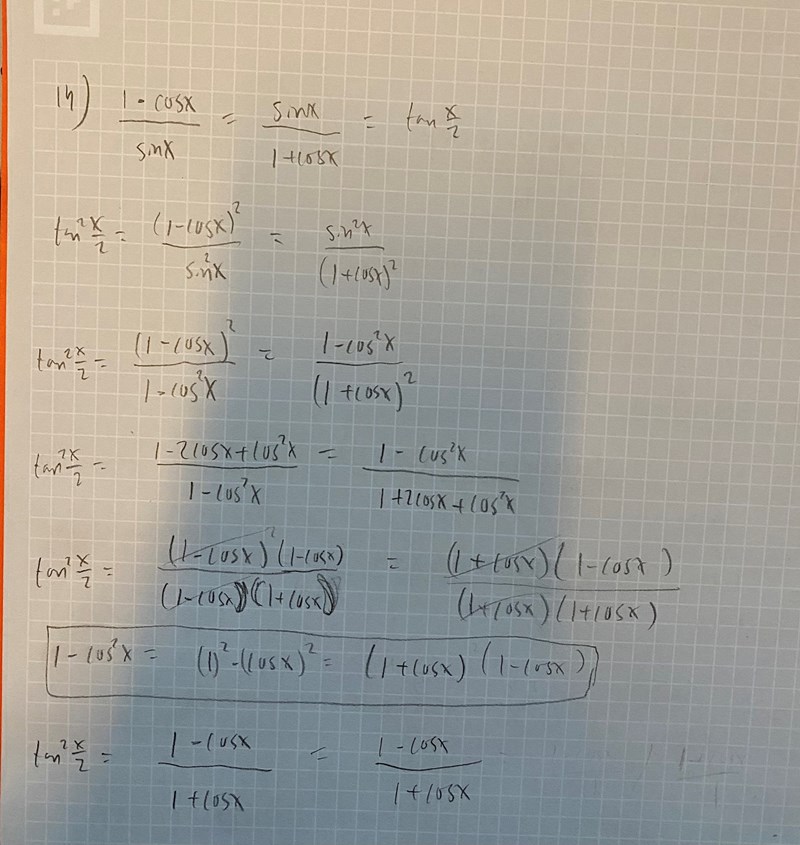 14) (1 - cosx)/(sinx) = (sinx)/(1+cosx) = tan x/2
tan² x/2 = (1-cosx)²/(sin²x) = (sin²x)/(1+cosx)²
tan² x/2 = (1-cosx)²/(1-cos²x) = (1-cos²x)/(1+cosx)²
tan² x/2 = (1-2cosx+cos²x)/(1-cos²x) = (1-cos²x)/(1+2cosx+cos²x)
tan² x/2 = (1-cosx)(1-cosx)/(1-cosx)(1+cosx) = (1+cosx)(1-cosx)/(1+cosx)(1+cosx)
1-cos²x = (1)²-(cosx)² = (1+cosx)(1-cosx)
tan² x/2 = (1-cosx)/(1+cosx) = (1-cosx)/(1+cosx)